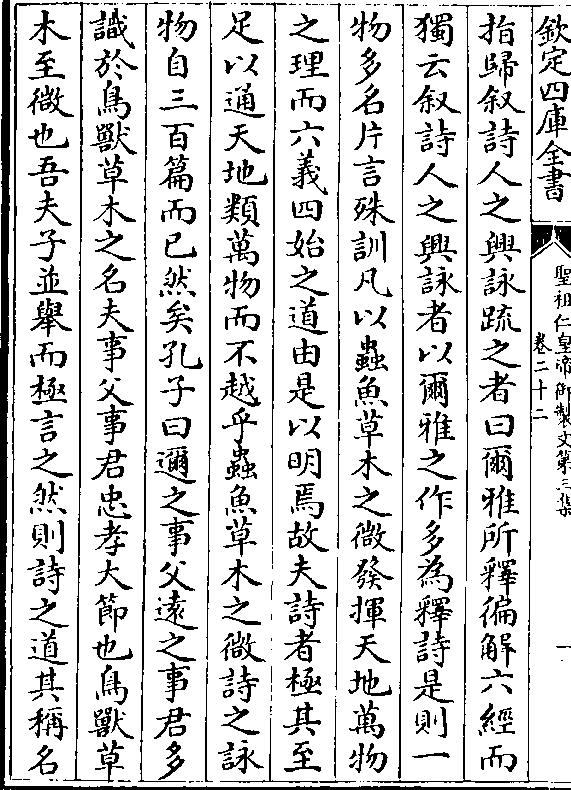 欽定四庫全書
聖祖仁皇帝御製文第三集
卷二十二
一
指歸叙詩人之興詠疏之者曰爾雅所釋徧解六經而
獨云叙詩人之興詠者以爾雅之作多為釋詩是則一
物多名片言殊訓凡以蟲魚草木之微發揮天地萬物
之理而六義四始之道由是以明焉故夫詩者極其至
足以通天地類萬物而不越乎蟲魚草木之微詩之詠
物自三百篇而已然矣孔子曰邇之事父遠之事君多
識於鳥獸草木之名夫事父事君忠孝大節也鳥獸草
木至微也吾夫子並舉而極言之然則詩之道其稱名